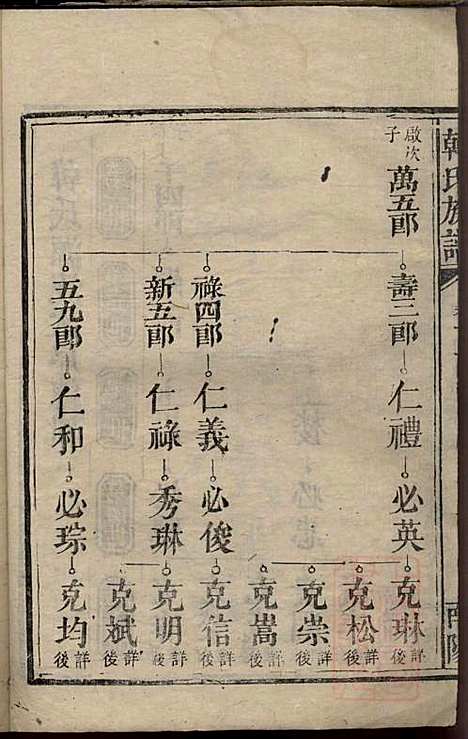 韓氏族譜
南陽
啟次子
萬五郎
壽二郎
仁禮
必英
克琳
詳後
克松
詳後
克崇
詳後
克嵩
詳後
祿四郎
仁義
必俊
克信
詳後
新五郎
仁祿
秀琳
克明
詳後
克斌
詳後
五九郎
仁和
必琮
克均
詳後